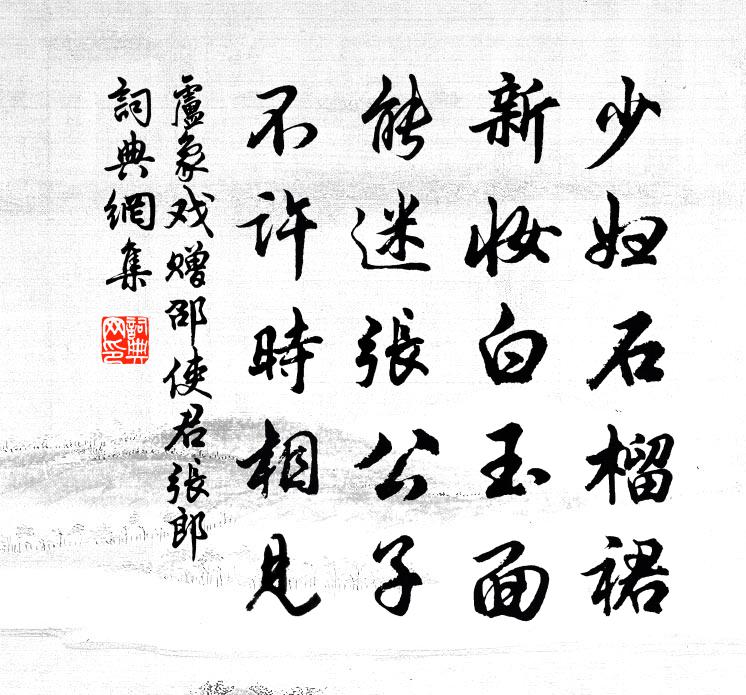 少妇石榴裙
新妆白玉面
能迷張公子
不许時相見
盧象戏赠邵使君張郎
詞典網集
詞典网印